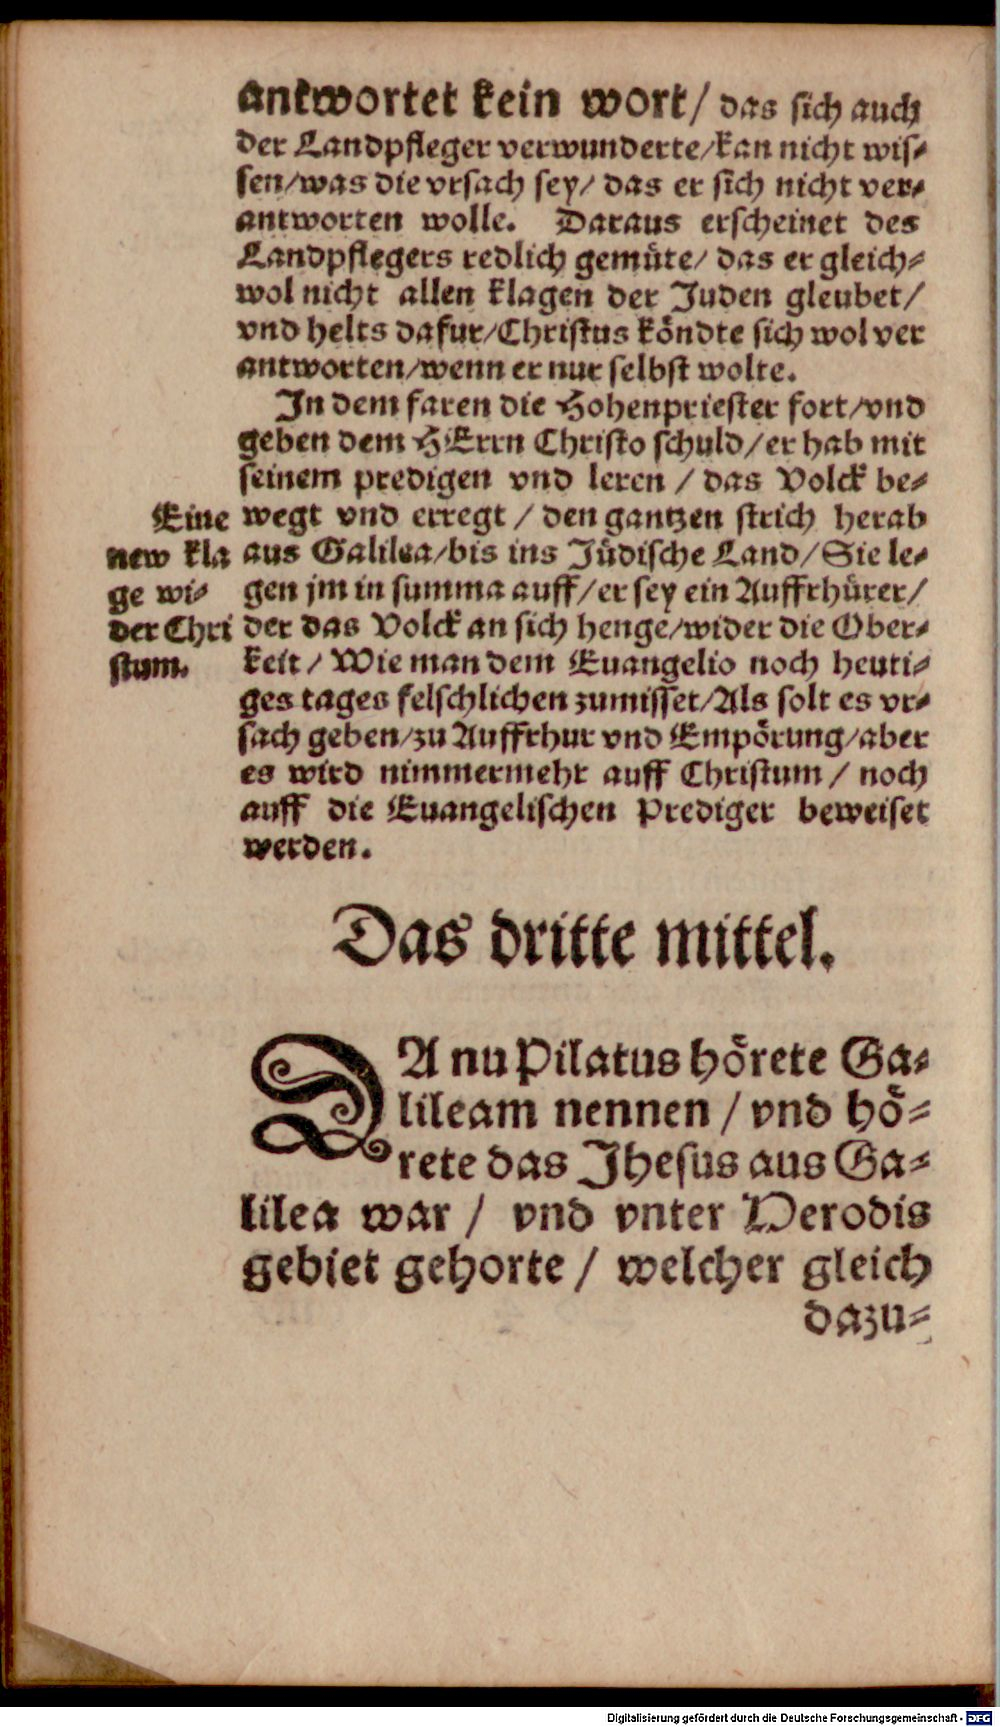 antwortet kein wort/ das sich auch
der Landpfleger verwunderte/kan nicht wis-
sen/was die vrsach sey/ das er sich nicht ver-
antworten wolle. Daraus erscheinet des
Landpflegers redlich gemüte/ das er gleich-
wol nicht allen klagen der Juden gleubet/
vnd helts dafur/Christus köndte sich wol ver
antworten/wenn er nur selbst wolte.
In dem faren die Hohenpriester fort/vnd
geben dem HErrn Christo schuld/er hab mit
seinem predigen vnd leren / das Volck be-
wegt vnd erregt / den gantzen strich herab
aus Galilea/bis ins Jüdische Land/Sie le-
gen jm in summa auff/er sey ein Auffrhürer/
der das Volck an sich henge/wider die Ober-
keit / Wie man dem Euangelio noch heuti-
ges tages felschlichen zumisset/Als solt es vr-
sach geben/zu Auffrhur vnd Empörung/aber
es wird nimmermehr auff Christum / noch
auff die Euangelischen Prediger beweiset
werden.
Eine
new kla
ge wi-
der Chri
stum.
Das dritte mittel.
DA nu Pilatus hörete Ga-
lileam nennen / vnd hö-
rete das Jhesus aus Ga-
lilea war / vnd vnter Herodis
gebiet gehorte / welcher gleich
dazu-
Digitalisierung gefördert durch die Deutsche Forschungsgemeinschaft - DFG